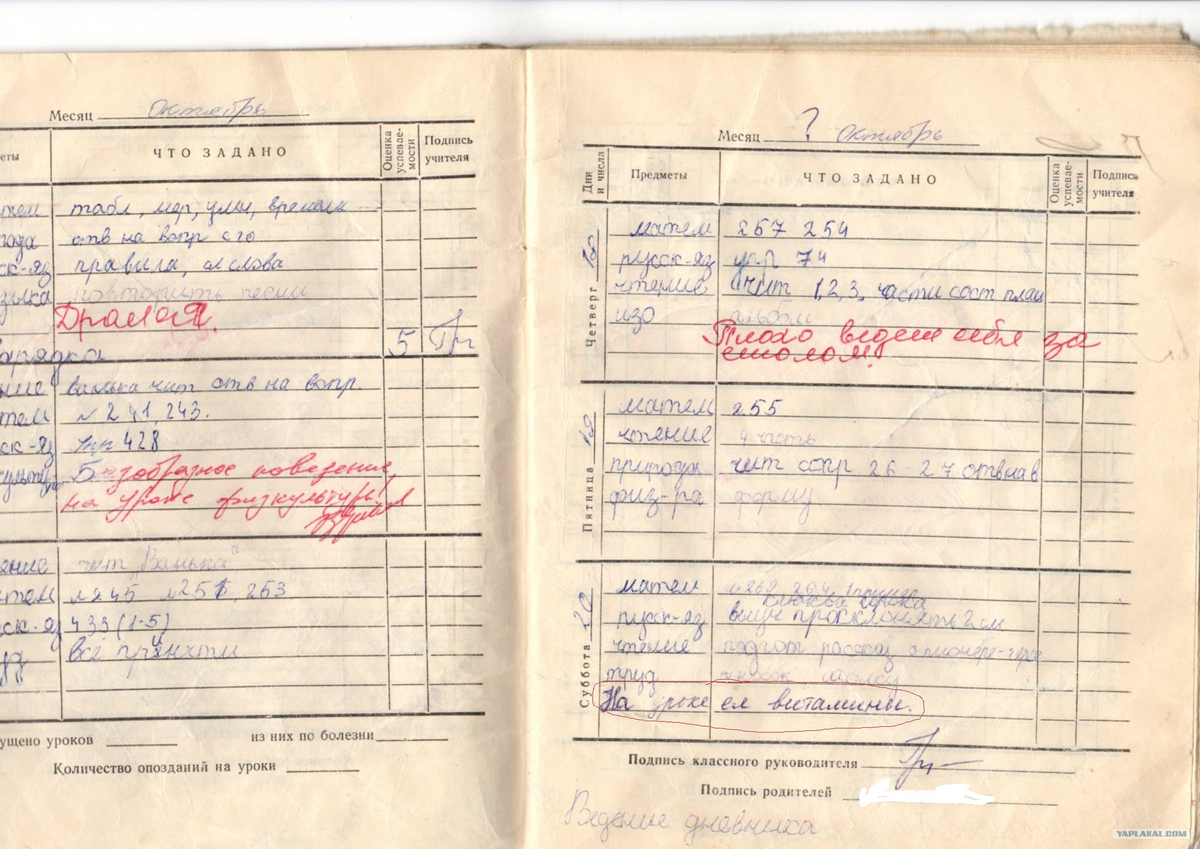 Месяц октябрь
еты ЧТО ЗАДАНО Оценка успевае-мости Подпись учителя
тем табл, мер, умн, времени
ода отв на вопр с 70
ск-яз правила, сл слова
зыка повторить песни
Дрался.
зарядка 5 Гр
ние ванька чит отв на вопр
тем № 241, 243.
ск-яз упр 428
культ Безобразное поведение
на уроке физкультуры!
ение чит "Ванька"
тем № 245 № 251 253
ск-яз 433 (1-5)
все принхти
ущено уроков из них по болезни
Количество опозданий на уроки
Месяц ? октябрь
Дни и числа Предметы ЧТО ЗАДАНО Оценка успевае-мости Подпись учителя
Четверг 18
матем 257 254
русск-яз 74
чтение чит 1,2,3, части сост план
изо альбом
Плохо ведет себя за
столом!
Пятница 19
матем 255
чтение 4 часть
природа чит стр 26-27 отв на в
физ-ра форму
Суббота 20
матем
русск-яз просклонять 2 сл
чтение подгот рассказ о пионере-герое
труд
На уроке ел витамины.
Подпись классного руководителя Гр
Подпись родителей
Ведение дневника
YAPLAKAL.COM